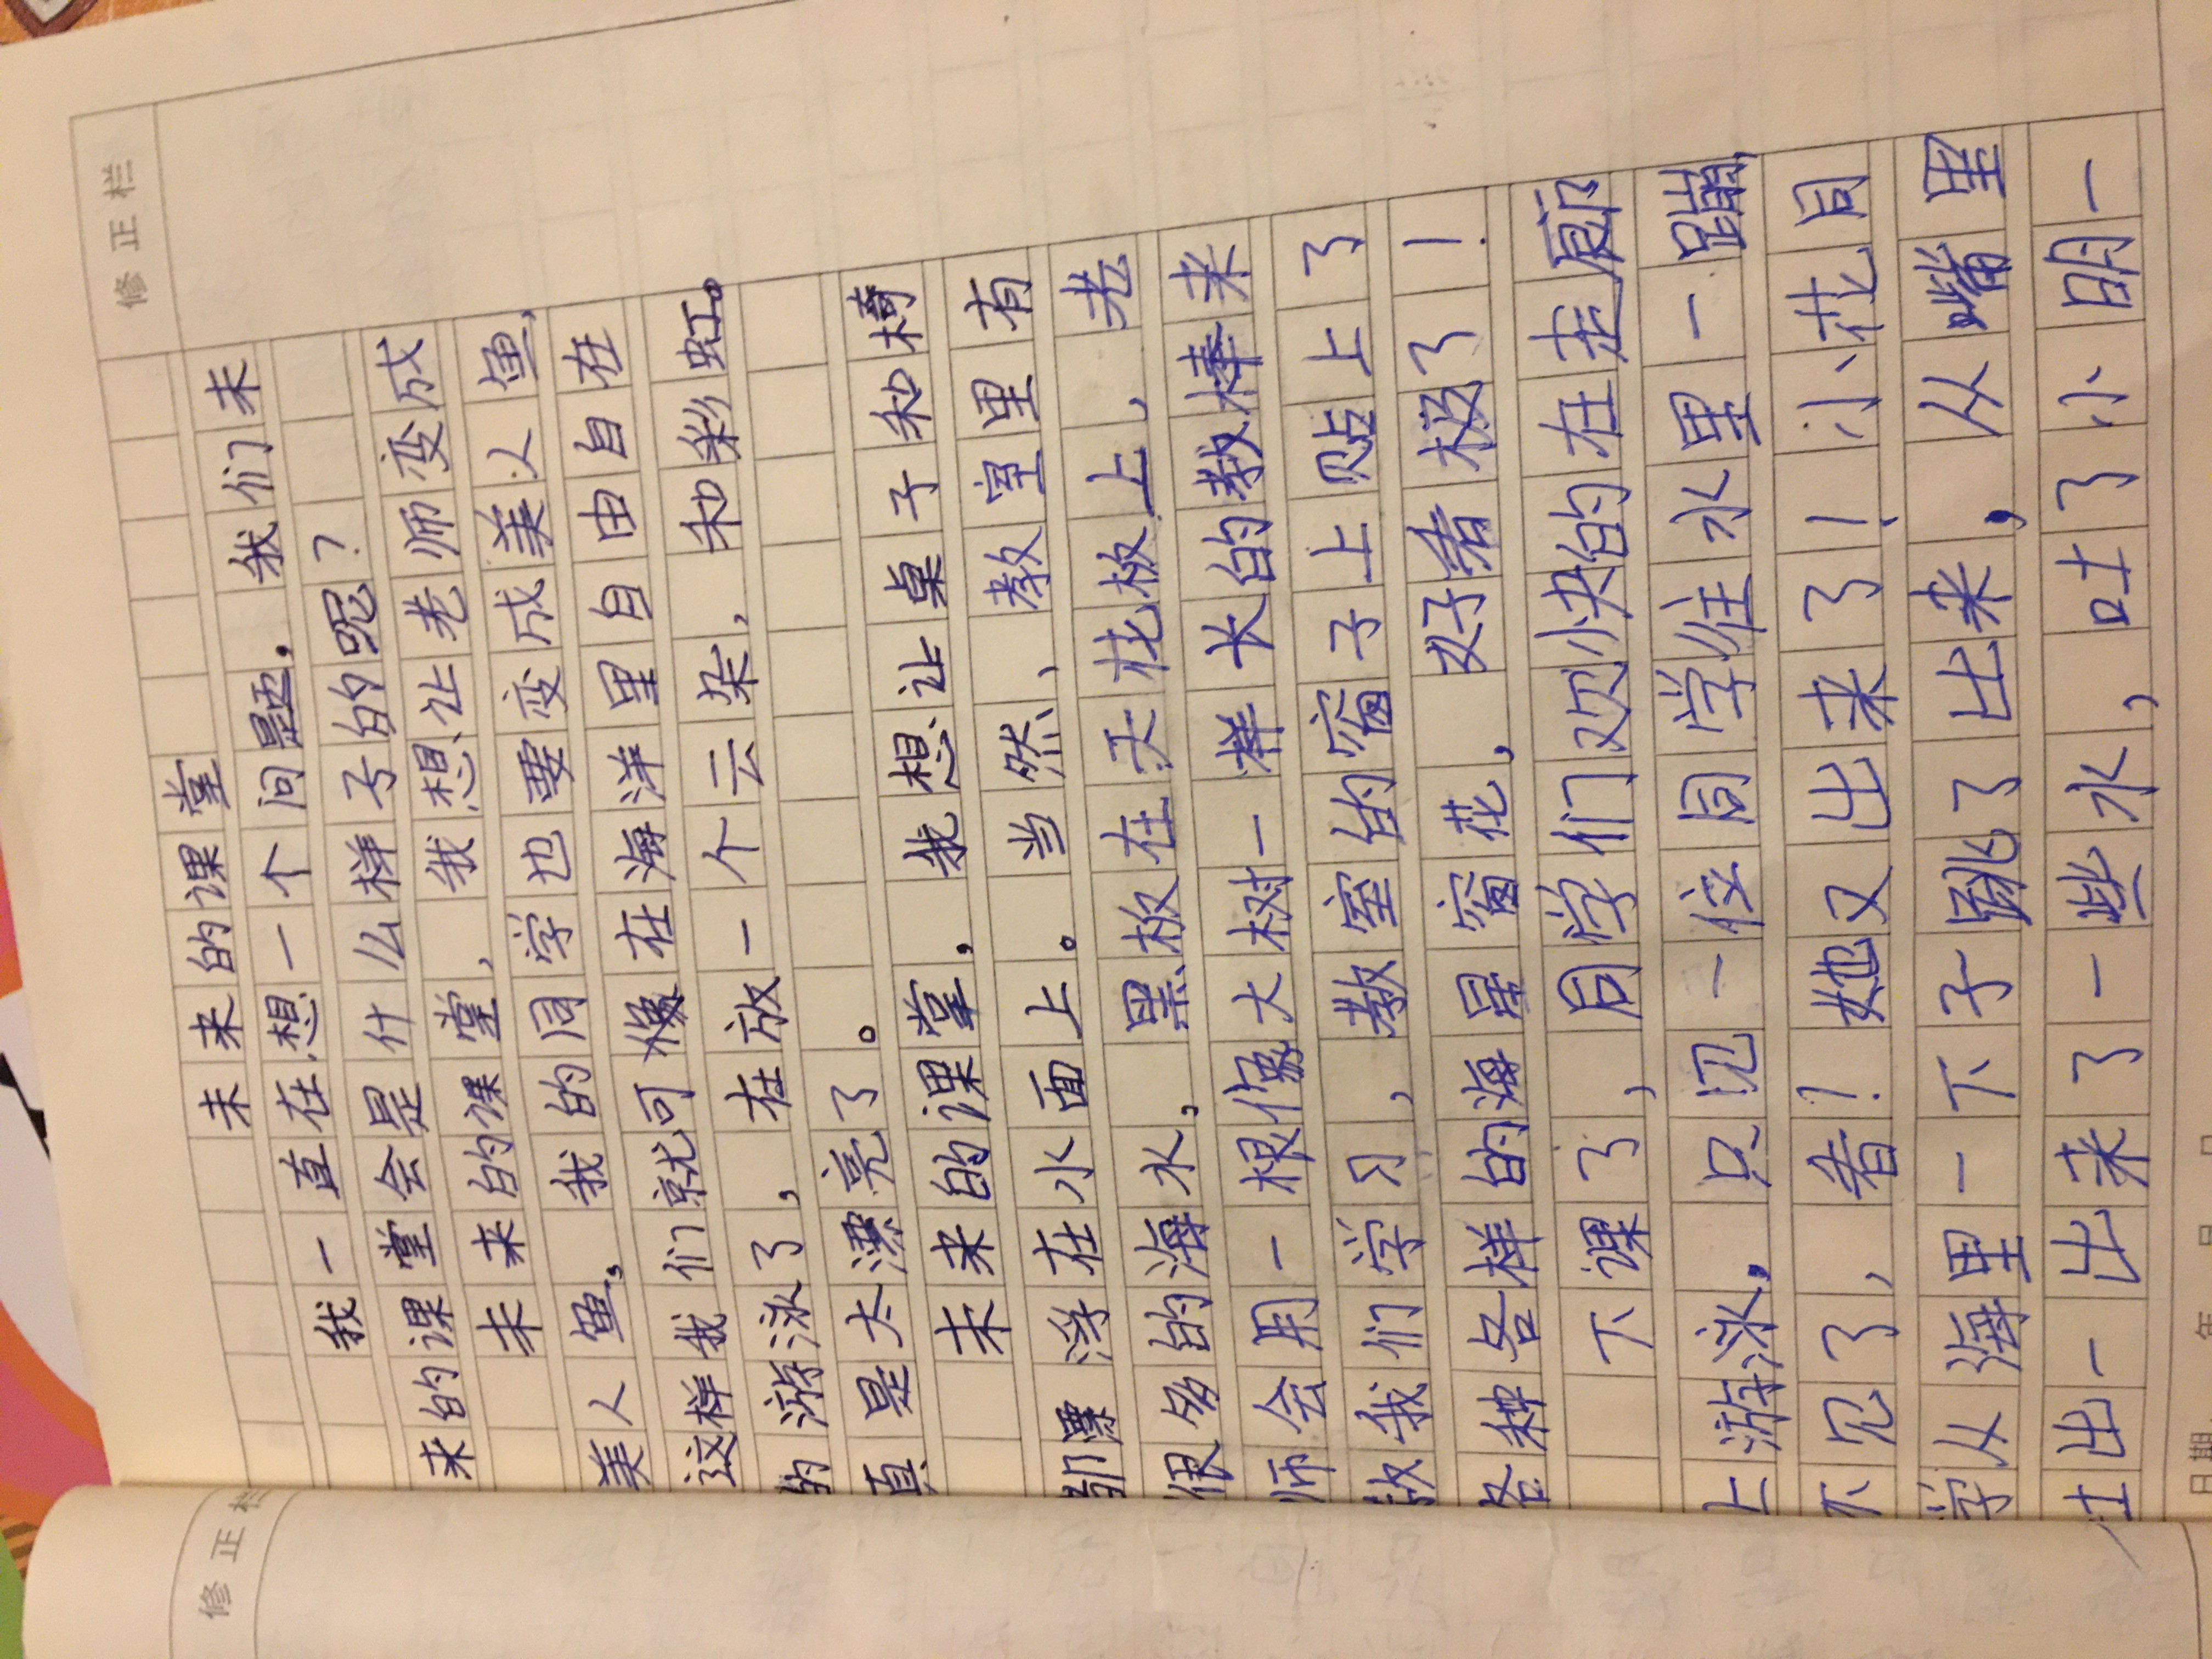 修正栏
未来的课堂
我一直在想一个问题，我们未
来的课堂会是什么样子的呢？
未来的课堂，我想让老师变成
美人鱼，我的同学也要变成美人鱼，
这样我们就可像在海洋里自由自在
的游泳了，在放一个云朵，和彩虹。
真是太漂亮了。
未来的课堂，我想让桌子和椅
都漂浮在水面上。当然、教室里有
很多的海水，黑板在天花板上，老
师会用一根像大树一样长的教棒来
教我们学习，教室的窗子上贴上了
各种各样的海星窗花，好看极了！
下课了，同学们欢快的在走廊
上游泳，只见一位同学往水里一蹦，
不见了，看！她又出来了！小花同
学从海里一下子跳了出来，从嘴里
吐出一出来了一些水，吐了小明一
日期 年 月 日
修正栏